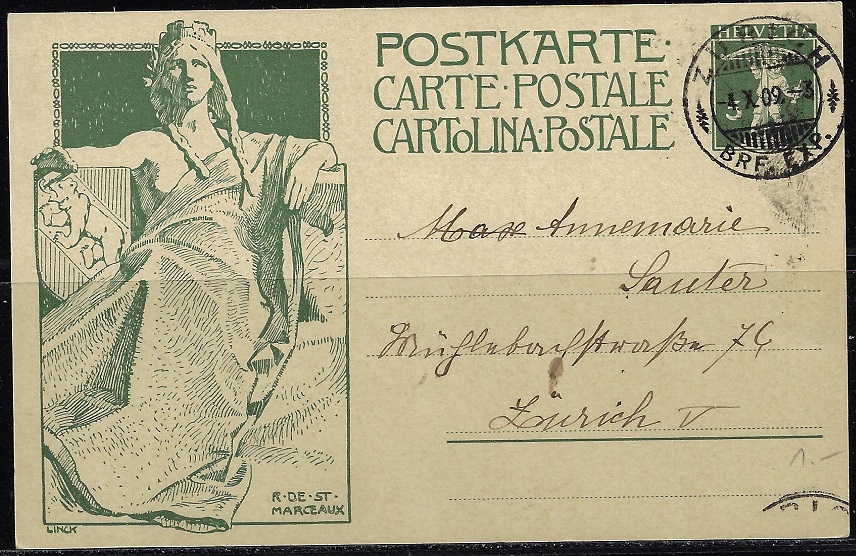 POSTKARTE·
CARTE·POSTALE
CARTOLINA·POSTALE
HELVETIA
-4.X.09.-3
BRF. EXP.
Max Annemarie
Sauter
Mühlebachstraße 76
Zürich V
1.-
R·DE·ST·
MARCEAUX
LINCK